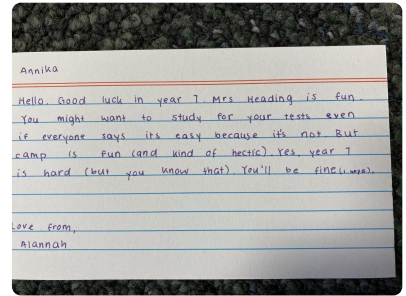 Annika
Hello. Good luck in year 7. Mrs Heading is fun.
You might want to study for your tests even
if everyone says its easy because it's not. But
camp is fun (and kind of hectic). Yes, year 7
is hard (but you know that). You'll be fine (I hope).
Love from,
Alannah